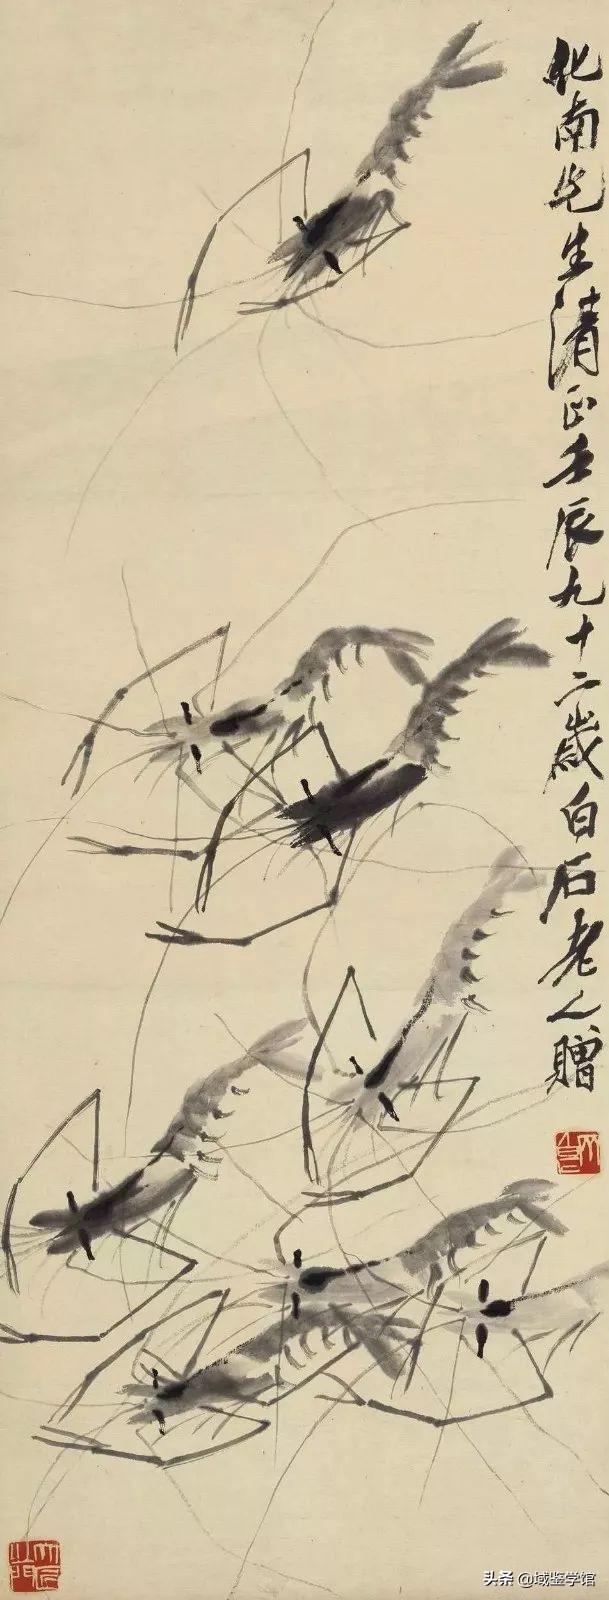 南先生清正壬辰九十二歲白石老人贈
头条 @域鉴学馆